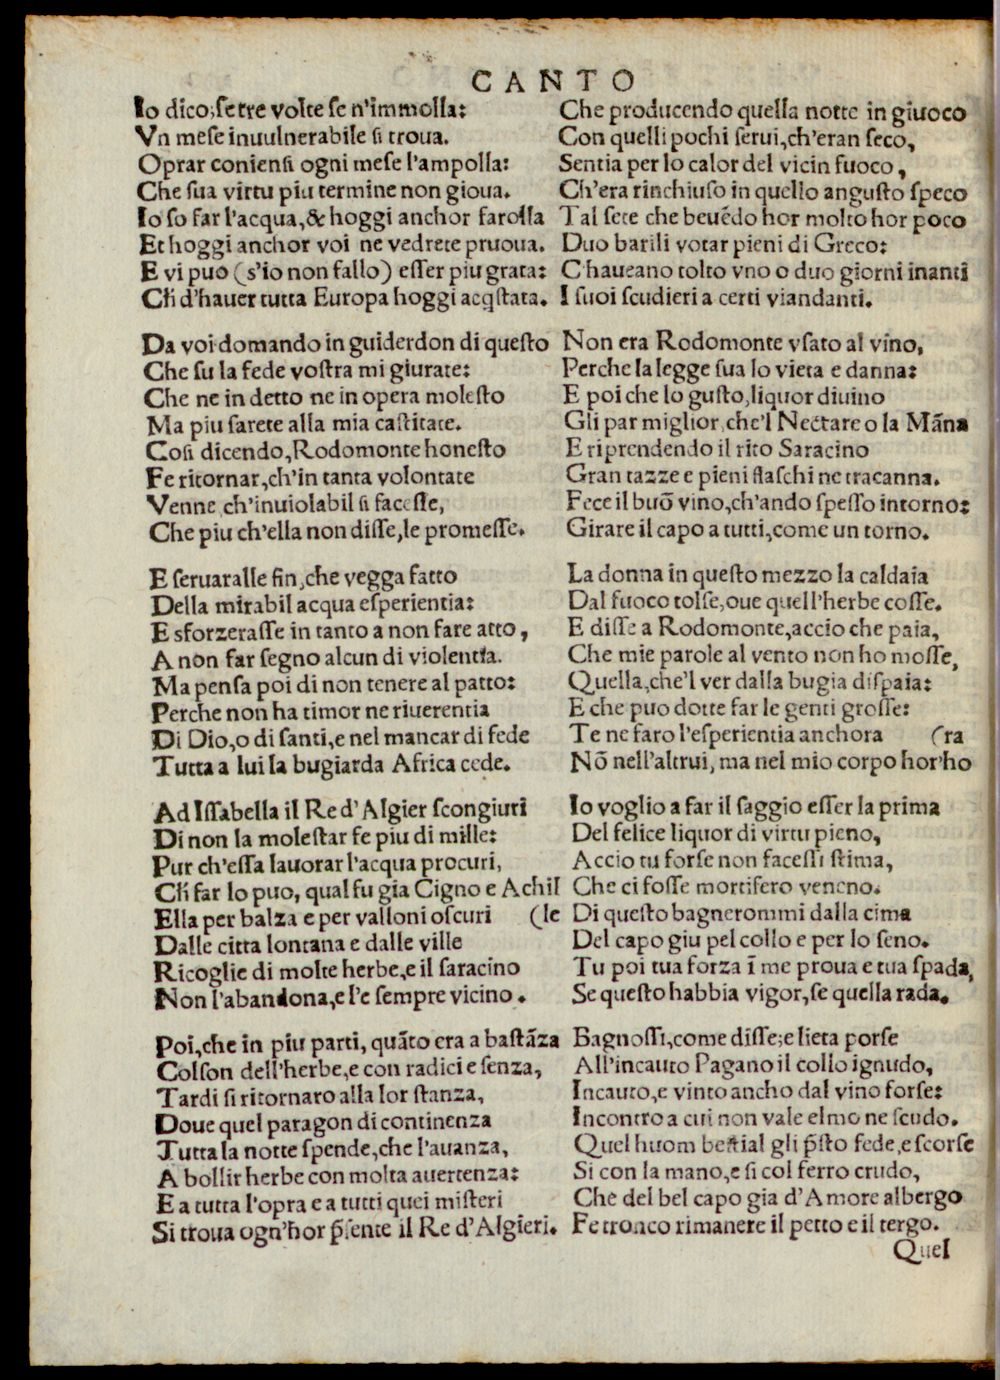 CANTO
Io dico, se tre volte se n'immolla:
Vn mese inuulnerabile si troua.
Oprar coniensi ogni mese l'ampolla:
Che sua virtu piu termine non gioua.
Io so far l'acqua, & hoggi anchor farolla
Et hoggi anchor voi ne vedrete pruoua.
E vi puo (s'io non fallo) esser piu grata:
Ch d'hauer tutta Europa hoggi acqstata.

Da voi domando in guiderdon di questo
Che su la fede vostra mi giurate:
Che ne in detto ne in opera molesto
Ma piu sarete alla mia castitate.
Cosi dicendo, Rodomonte honesto
Fe ritornar, ch'in tanta volontate
Venne, ch'inuiolabil si facesse,
Che piu ch'ella non disse, le promesse.

E seruaralle fin, che vegga fatto
Della mirabil acqua esperientia:
E sforzerasse in tanto a non fare atto,
A non far segno alcun di violentia.
Ma pensa poi di non tenere al patto:
Perche non ha timor ne riuerentia
Di Dio, o di santi, e nel mancar di fede
Tutta a lui la bugiarda Africa cede.

Ad Issabella il Re d'Algier scongiuri
Di non la molestar fe piu di mille:
Pur ch'essa lauorar l'acqua procuri,
Ch far lo puo, qual fu gia Cigno e Achil
Ella per balza e per valloni oscuri (le
Dalle citta lontana e dalle ville
Ricoglie di molte herbe, e il saracino
Non l'abandona, e l'e sempre vicino.

Poi, che in piu parti, quāto era a bastāza
Colson dell'herbe, e con radici e senza,
Tardi si ritornaro alla lor stanza,
Doue quel paragon di continenza
Tutta la notte spende, che l'auanza,
A bollir herbe con molta auertenza:
E a tutta l'opra e a tutti quei misteri
Si troua ogn'hor p̄sente il Re d'Algieri.

Che producendo quella notte in giuoco
Con quelli pochi serui, ch'eran seco,
Sentia per lo calor del vicin fuoco,
Ch'era rinchiuso in quello angusto speco
Tal sete che beuēdo hor molto hor poco
Duo barili votar pieni di Greco:
C'haueano tolto vno o duo giorni inanti
I suoi scudieri a certi viandanti.

Non era Rodomonte vsato al vino,
Perche la legge sua lo vieta e danna:
E poi che lo gusto, liquor diuino
Gli par miglior, che'l Nectare o la Māna
E riprendendo il rito Saracino
Gran tazze e pieni fiaschi ne tracanna.
Fece il buō vino, ch'ando spesso intorno:
Girare il capo a tutti, come un torno.

La donna in questo mezzo la caldaia
Dal fuoco tolse, oue quell'herbe cosse.
E disse a Rodomonte, accio che paia,
Che mie parole al vento non ho mosse,
Quella, che'l ver dalla bugia dispaia:
E che puo dotte far le genti grosse:
Te ne faro l'esperientia anchora (ra
Nō nell'altrui, ma nel mio corpo hor'ho

Io voglio a far il saggio esser la prima
Del felice liquor di virtu pieno,
Accio tu forse non facessi stima,
Che ci fosse mortifero veneno.
Di questo bagnerommi dalla cima
Del capo giu pel collo e per lo seno.
Tu poi tua forza ī me proua e tua spada,
Se questo habbia vigor, se quella rada.

Bagnossi, come disse; e lieta porse
All'incauto Pagano il collo ignudo,
Incauto, e vinto ancho dal vino forse:
Incontro a cui non vale elmo ne scudo.
Quel huom bestial gli p̄sto fede, e scorse
Si con la mano, e si col ferro crudo,
Che del bel capo gia d'Amore albergo
Fe tronco rimanere il petto e il tergo.
Quel